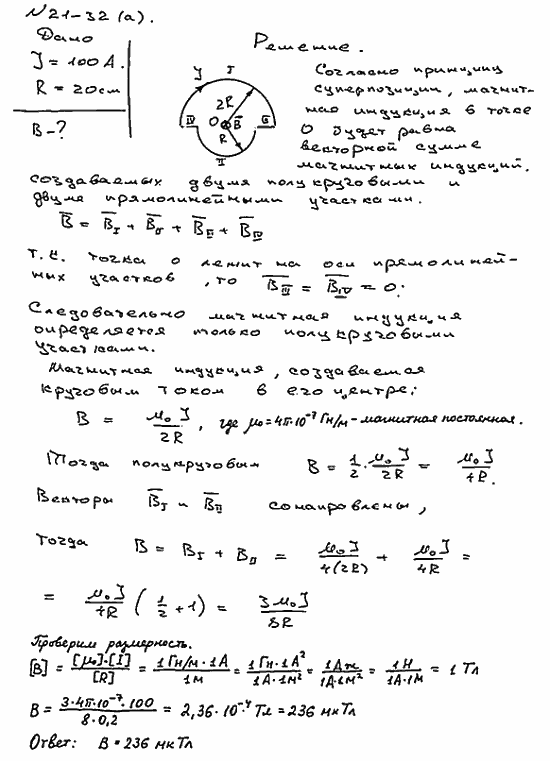 N21-32 (а).
Дано
J = 100 А.
R = 20см
B-?
Решение.
J I
2R
IV O B̅ III
R
II
Согласно принципу
суперпозиции, магнит-
ная индукция в точке
О будет равна
векторной сумме
магнитных индукций,
создаваемых двумя полукруговыми и
двумя прямолинейными участками.
B̅ = B̅_I + B̅_II + B̅_III + B̅_IV
Т.к. точка О лежит на оси прямолиней-
ных участков, то B̅_III = B̅_IV = 0;
Следовательно магнитная индукция
определяется только полукруговыми
участками.
Магнитная индукция, создаваемая
круговым током в его центре:
B = μ₀J / 2R, где μ₀=4π·10⁻⁷ Гн/м - магнитная постоянная.
Тогда полукруговым B = 1/2 · μ₀J / 2R = μ₀J / 4R.
Векторы B̅_I и B̅_II сонаправлены,
тогда B = B_I + B_II = μ₀J / 4(2R) + μ₀J / 4R =
= μ₀J / 4R (1/2 + 1) = 3μ₀J / 8R
Проверим размерность.
[B] = [μ₀]·[I] / [R] = 1 Гн/м · 1А / 1м = 1Гн·1А² / 1А·1м² = 1Дж / 1А·1м² = 1Н / 1А·1м = 1 Тл
B = 3·4π·10⁻⁷·100 / 8·0,2 = 2,36·10⁻⁴ Тл = 236 мкТл
Ответ: B = 236 мкТл